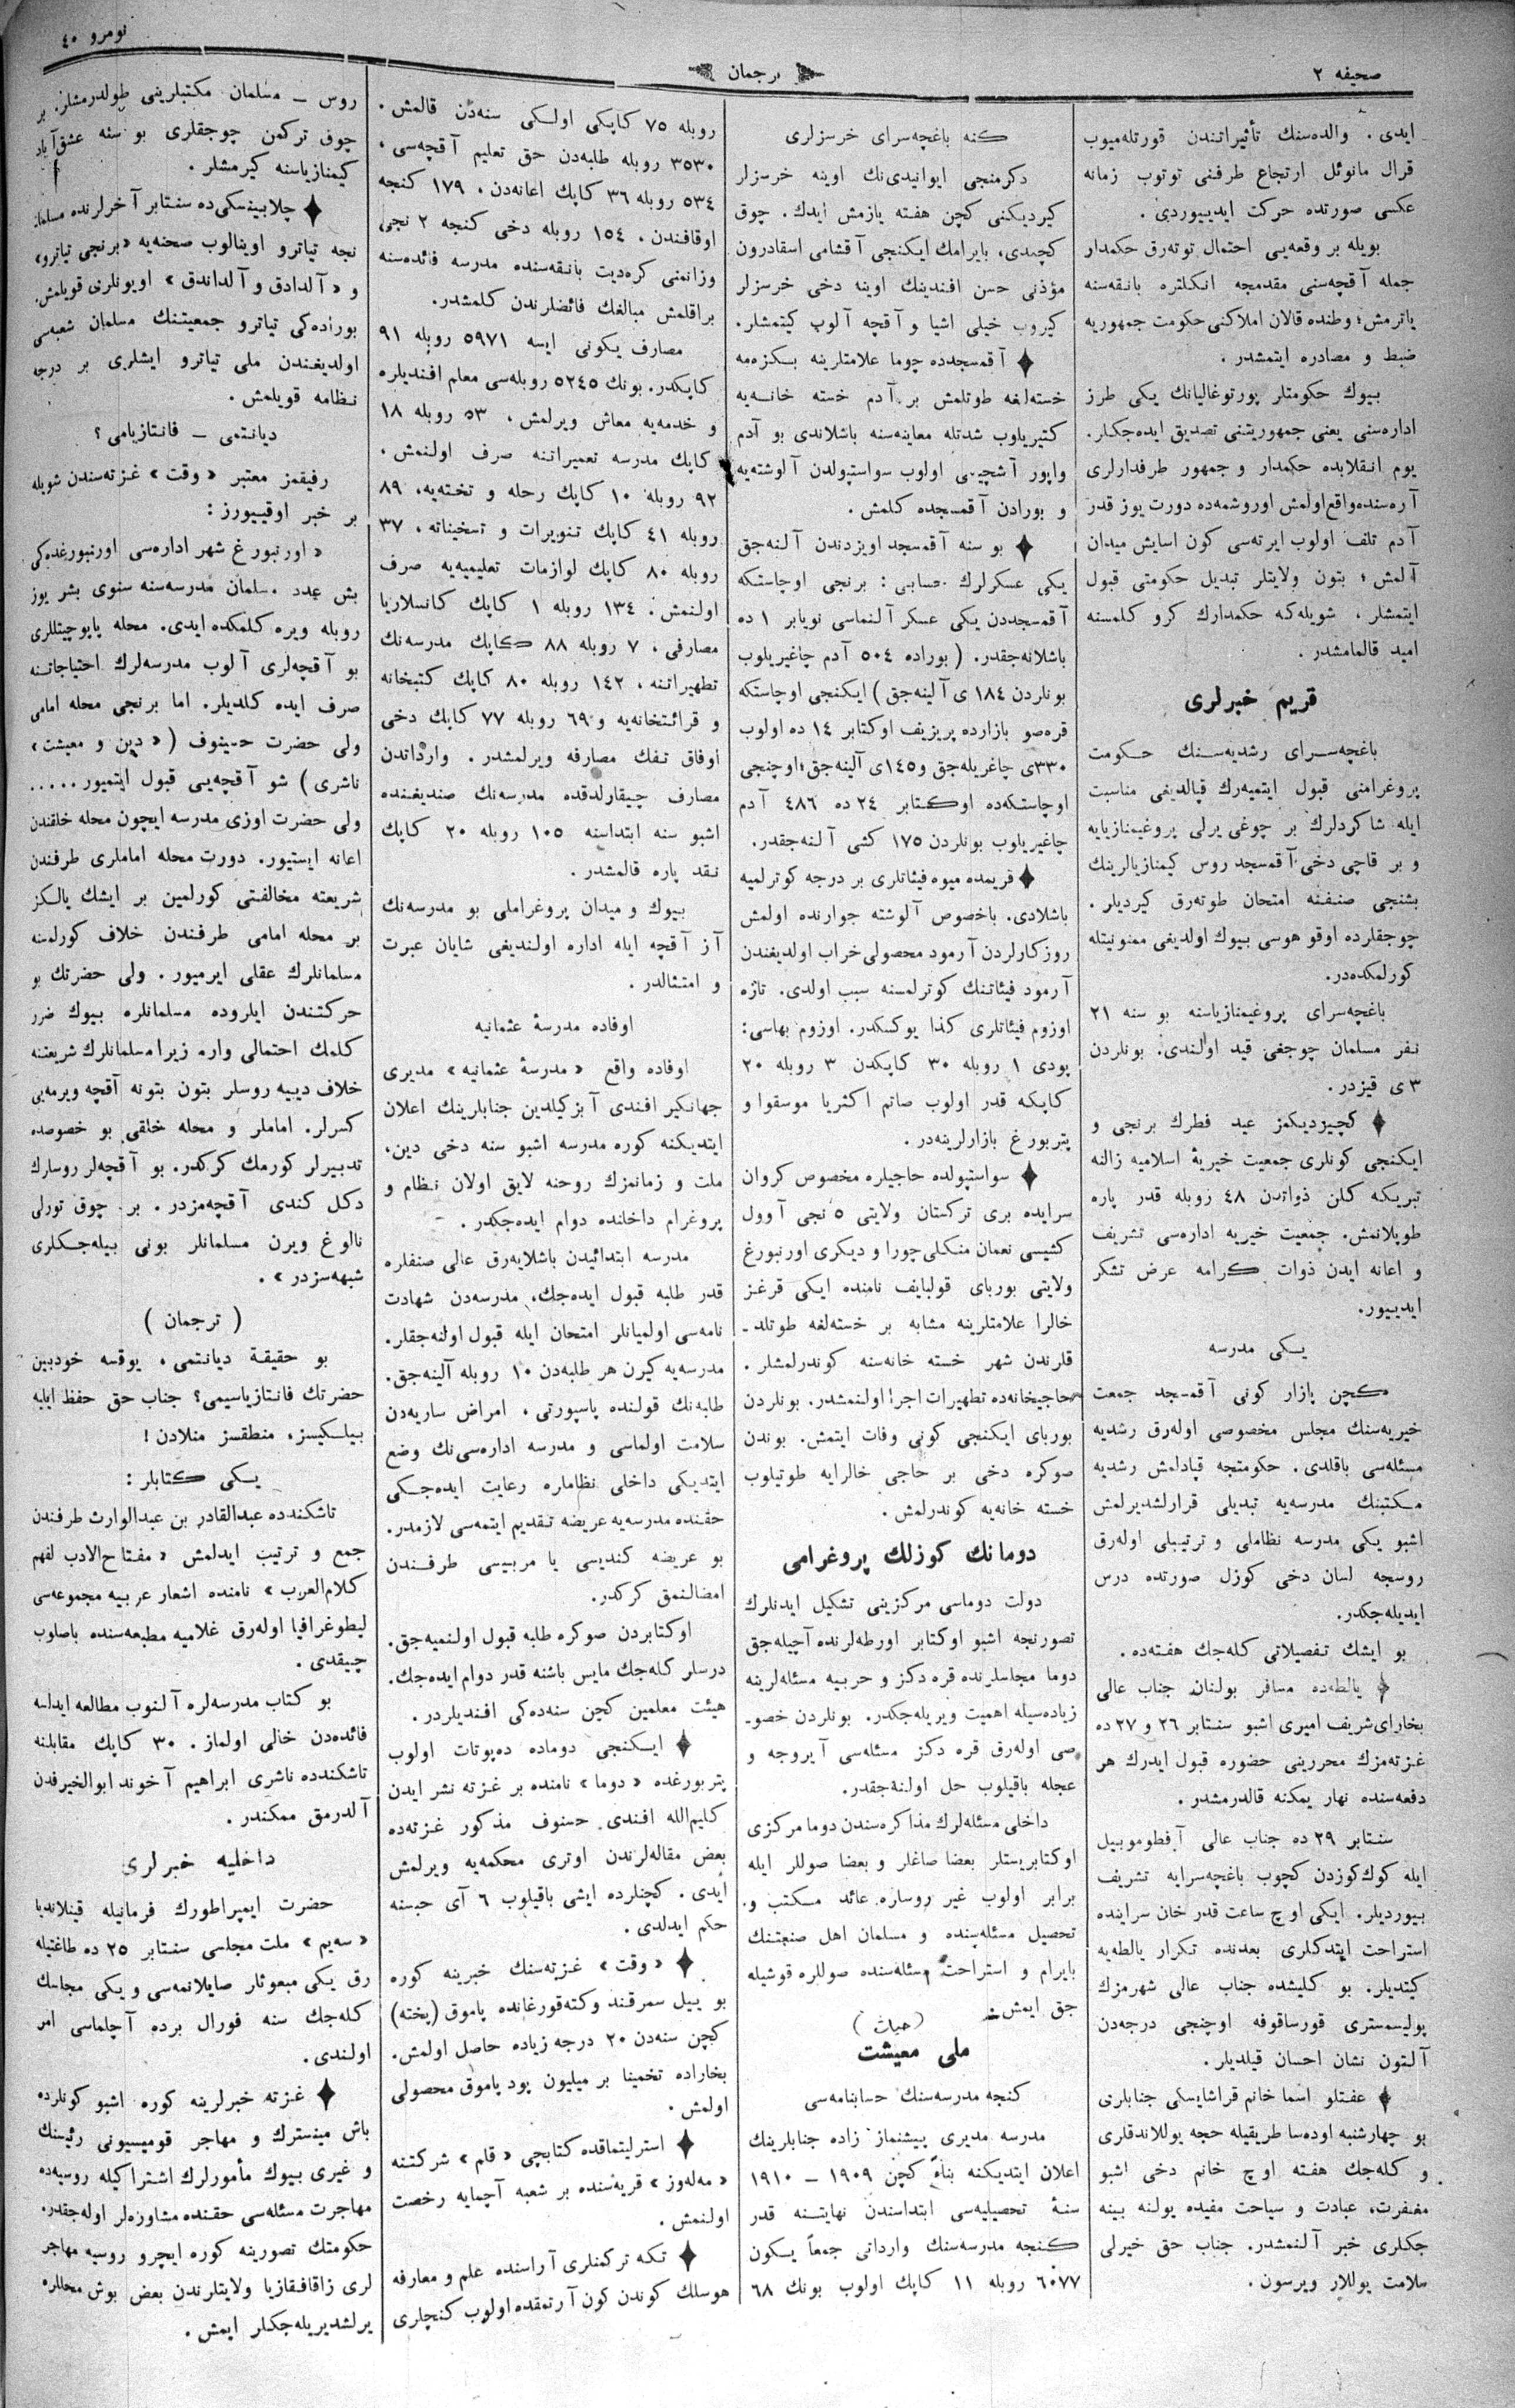 صحیفه ٢
ترجمان
نومرو ٤٠
ایدی . والده‌سنك تأثیراتندن قورتله‌میوب
قرال مانوئل ارتجاع طرفنی توتوب زمانه
عکسی صورتده حرکت ایدییوردی .
بویله بر وقعه‌یی احتمال توته‌رق حکمدار
جمله آقچه‌سنی مقدمجه انکلتره بانقه‌سنه
یاترمش؛ وطنده قالان املاکنی حکومت جمهوریه
ضبط و مصادره ایتمشدر .
بیوك حکومتلر پورتوغالیانك یکی طرز
اداره‌سنی یعنی جمهوریتنی تصدیق ایده‌جکلر.
یوم انقلابده حکمدار و جمهور طرفدارلری
آره‌سنده واقع اولمش اوروشمه‌ده دورت یوز قدر
آدم تلف اولوب ایرته‌سی کون اسایش میدان
آلمش؛ بتون ولایتلر تبدیل حکومتی قبول
ایتمشلر ، شویله‌که حکمدارك کرو کلمسنه
امید قالمامشدر .
قریم خبرلری
باغچه‌سرای رشدیه‌سنك حکومت
پروغرامنی قبول ایتمیه‌رك قپالدیغی مناسبت
ایله شاکردلرك بر چوغی یرلی پروغیمنازیایه
و بر قاچی دخی آقمسجد روس کیمنازیالرینك
بشنجی صنفنه امتحان طوته‌رق کیردیلر .
چوجقلرده اوقو هوسی بیوك اولدیغی ممنونیتله
کورلمکده‌در.
باغچه‌سرای پروغیمنازیاسنه بو سنه ٢١
نفر مسلمان چوجغی قید اولندی. بونلردن
٣ ی قیزدر.
کچیزدیکمز عید فطرك برنجی و
ایکنجی کونلری جمعیت خیریۀ اسلامیه زالنه
تبریکه کلن ذواتدن ٤٨ روبله قدر پاره
طوپلانمش. جمعیت خیریه اداره‌سی تشریف
و اعانه ایدن ذوات کرامه عرض تشکر
ایدییور.
یکی مدرسه
کچن پازار کونی آقمسجد جمعت
خیریه‌سنك مجلس مخصوصی اوله‌رق رشدیه
مسئله‌سی باقلدی. حکومتجه قپادلمش رشدیه
مکتبنك مدرسه‌یه تبدیلی قرارلشدیرلمش
اشبو یکی مدرسه نظاملی و ترتیبلی اوله‌رق
روسجه لسان دخی کوزل صورتده درس
ایدیله‌جکدر.
بو ایشك تفصیلاتی کله‌جك هفته‌ده.
یالطه‌ده مسافر بولنان جناب عالی
بخارای شریف امیری اشبو سنتابر ٢٦ و ٢٧ ده
غزته‌مزك محررینی حضوره قبول ایدرك هر
دفعه‌سنده نهار یمکنه قالدرمشدر .
سنتابر ٢٩ ده جناب عالی آفطوموبیل
ایله کوك کوزدن کچوب باغچه‌سرایه تشریف
بیوردیلر. ایکی اوچ ساعت قدر خان سراینده
استراحت ایتدکلری بعدنده تکرار یالطه‌یه
کیتدیلر. بو کلیشده جناب عالی شهرمزك
پولیسمستری قورساقوفه اوچنجی درجه‌دن
آلتون نشان احسان قیلدیلر .
عفتلو اسما خانم قراشایسکی جنابلری
بو چهارشنبه اوده‌سا طریقیله حجه یوللاندقلری
و کله‌جك هفته اوچ خانم دخی اشبو
مغفرت، عبادت و سیاحت مفیده یولنه بینه
جکلری خبر آلنمشدر. جناب حق خیرلی
سلامت یوللار ویرسون .
کنه باغچه‌سرای خرسزلری
دکرمنجی ایوانیدی‌نك اوینه خرسزلر
کیردیکنی کچن هفته یازمش ایدك . چوق
کچمدی، بایرامك ایکنجی آقشامی اسقادرون
مؤذنی حسن افندینك اوینه دخی خرسزلر
کیروب خیلی اشیا و آقچه آلوب کیتمشلر.
آقمسجدده چوما علامتلرینه بکزه‌مه
خسته‌لغه طوتلمش بر آدم خسته خانه‌یه
کتیریلوب شدتله معاینه‌سنه باشلاندی بو آدم
واپور آشچیسی اولوب سواستپولدن آلوشته‌یه
و بورادن آقمسجده کلمش .
بو سنه آقمسجد اویزدندن آلنه‌جق
یکی عسکرلرك حسابی : برنجی اوچاستکه
آقمسجددن یکی عسکر آلنماسی نویابر ١ ده
باشلانه‌جقدر. ( بوراده ٥٠٤ آدم چاغیریلوب
بونلردن ١٨٤ ی آلینه‌جق ) ایکنجی اوچاستکه
قره‌صو بازارده پریزیف اوکتابر ١٤ ده اولوب
٣٣٠ی چاغریله‌جق و ١٤٥ی آلینه‌جق؛ اوچنجی
اوچاستکه‌ده اوکتابر ٢٤ ده ٤٨٦ آدم
چاغیریلوب بونلردن ١٧٥ کشی آلنه‌جقدر.
قریمده میوه فیئاتلری بر درجه کوترلمیه
باشلادی. باخصوص آلوشته جوارنده اولمش
روزکارلردن آرمود محصولی خراب اولدیغندن
آرمود فیئاتنك کوترلمسنه سبب اولدی. تازه
اوزوم فیئاتلری کذا یوکسکدر. اوزوم بهاسی:
پودی ١ روبله ٣٠ کاپکدن ٣ روبله ٢٠
کاپکه قدر اولوب صاتم اکثریا موسقوا و
پتربورغ بازارلرینه‌در .
سواستپولده حاجیلره مخصوص کروان
سرایده بری ترکستان ولایتی ٥ نجی آوول
کشیسی نعمان منکلی چورا و دیکری اورنبورغ
ولایتی بوربای قولبایف نامنده ایکی قرغز
خالرا علامتلرینه مشابه بر خسته‌لغه طوتلد-
قلرندن شهر خسته خانه‌سنه کوندرلمشلر .
حاجیخانه‌ده تطهیرات اجرا اولنمشدر. بونلردن
بوربای ایکنجی کونی وفات ایتمش. بوندن
صوکره دخی بر حاجی خالرایه طوتیلوب
خسته خانه‌یه کوندرلمش .
دومانك کوزلك پروغرامی
دولت دوماسی مرکزینی تشکیل ایدنلرك
تصورنجه اشبو اوکتابر اورطه‌لرنده آچیله‌جق
دوما مجلسلرنده قره دکز و حربیه مسئله‌لرینه
زیاده‌سیله اهمیت ویریله‌جکدر. بونلردن خصو-
صی اوله‌رق قره دکز مسئله‌سی آیروجه و
عجله باقیلوب حل اولنه‌جقدر.
داخلی مسئله‌لرك مذاکره‌سندن دوما مرکزی
اوکتابریستلر بعضا صاغلر و بعضا صوللر ایله
برابر اولوب غیر روسلره عائد مکتب و
تحصیل مسئله‌سنده و مسلمان اهل صنعتنك
بایرام و استراحت مسئله‌سنده صوللره قوشیله
جق ایمش .
( حیات )
ملی معیشت
کنجه مدرسه‌سنك حسابنامه‌سی
مدرسه مدیری پیشنماز زاده جنابلرینك
اعلان ایتدیکنه بناءً کچن ١٩٠٩ – ١٩١٠
سنۀ تحصیلیه‌سی ابتداسندن نهایتنه قدر
کنجه مدرسه‌سنك وارداتی جمعاً یکون
٦٠٧٧ روبله ١١ کاپك اولوب بونك ٦٨
روبله ٧٥ کاپکی اولکی سنه‌دن قالمش .
٣٥٣٠ روبله طلبه‌دن حق تعلیم آقچه‌سی ،
٥٣٤ روبله ٣٦ کاپك اعانه‌دن ، ١٧٩ کنجه
اوقافندن ، ١٥٤ روبله دخی کنجه ٢ نجی
وزائمنی کره‌دیت بانقه‌سنده مدرسه فائده‌سنه
براقلمش مبالغك فائضلرندن کلمشدر.
مصارف یکونی ایسه ٥٩٧١ روبله ٩١
کاپکدر. بونك ٥٢٤٥ روبله‌سی معلم افندیلره
و خدمه‌یه معاش ویرلمش ، ٥٣ روبله ١٨
کاپك مدرسه تعمیراتنه صرف اولنمش ،
٩٢ روبله ١٠ کاپك رحله و تخته‌یه، ٨٩
روبله ٤١ کاپك تنویرات و تسخیناته ، ٣٧
روبله ٨٠ کاپك لوازمات تعلیمیه‌یه صرف
اولنمش. ١٣٤ روبله ١ کاپك کانسلاریا
مصارفی ، ٧ روبله ٨٨ کاپك مدرسه‌نك
تطهیراتنه ، ١٤٢ روبله ٨٠ کاپك کتبخانه
و قرائتخانه‌یه و ٦٩ روبله ٧٧ کاپك دخی
اوفاق تفك مصارفه ویرلمشدر . وارداتدن
مصارف چیقارلدقده مدرسه‌نك صندیغنده
اشبو سنه ابتداسنه ١٠٥ روبله ٢٠ کاپك
نقد پاره قالمشدر .
بیوك و میدان پروغراملی بو مدرسه‌نك
آز آقچه ایله اداره اولندیغی شایان عبرت
و امتثالدر .
اوفاده مدرسۀ عثمانیه
اوفاده واقع « مدرسۀ عثمانیه » مدیری
جهانکیر افندی آبزکیلدین جنابلرینك اعلان
ایتدیکنه کوره مدرسه اشبو سنه دخی دین،
ملت و زمانمزك روحنه لایق اولان نظام و
پروغرام داخلنده دوام ایده‌جکدر .
مدرسه ابتدائیدن باشلایه‌رق عالی صنفلره
قدر طلبه قبول ایده‌جك، مدرسه‌دن شهادت
نامه‌سی اولمیانلر امتحان ایله قبول اولنه‌جقلر.
مدرسه‌یه کیرن هر طلبه‌دن ١٠ روبله آلینه‌جق.
طلبه‌نك قولنده پاسپورتی ، امراض ساریه‌دن
سلامت اولماسی و مدرسه اداره‌سی‌نك وضع
ایتدیکی داخلی نظاماره رعایت ایده‌جکی
حقنده مدرسه‌یه عریضه تقدیم ایتمه‌سی لازمدر.
بو عریضه کندیسی یا مربیسی طرفندن
امضالنمق کرکدر.
اوکتابردن صوکره طلبه قبول اولنمیه‌جق.
درسلر کله‌جك مایس باشنه قدر دوام ایده‌جك.
هیئت معلمین کچن سنه‌ده‌کی افندیلردر .
ایکنجی دوماده ده‌پوتات اولوب
پتربورغده « دوما » نامنده بر غزته نشر ایدن
کلیم‌الله افندی حسنوف مذکور غزته‌ده
بعض مقاله‌لرندن اوتری محکمه‌یه ویرلمش
ایدی . کچنلرده ایشی باقیلوب ٦ آی حبسنه
حکم ایدلدی .
« وقت » غزته‌سنك خبرینه کوره
بو ییل سمرقند وکته‌قورغانده پاموق (پخته)
کچن سنه‌دن ٢٠ درجه زیاده حاصل اولمش.
بخاراده تخمینا بر میلیون پود پاموق محصولی
اولمش .
استرلیتماقده کتابچی « قلم » شرکتنه
« مه‌له‌وز » قریه‌سنده بر شعبه آچمایه رخصت
اولنمش .
تکه ترکمنلری آراسنده علم و معارفه
هوسلك کوندن کون آرتمقده اولوب کنجلری
روس – مسلمان مکتبلرینی طولدرمشلر. بر
چوق ترکمن چوجقلری بو سنه عشق‌آباد
کیمنازیاسنه کیرمشلر .
چلابینسکی‌ده سنتابر آخرلرنده مسلمانـ
نجه تیاترو اوینالوب صحنه‌یه «برنجی تیاترو»
و « آلدادق و آلداندق » اویونلری قویلمش.
بوراده‌کی تیاترو جمعیتنك مسلمان شعبه‌سی
اولدیغندن ملی تیاترو ایشلری بر درجه
نظامه قویلمش .
دیانتمی – فانتازیامی ؟
رفیقمز معتبر « وقت » غزته‌سندن شویله
بر خبر اوقییورز :
« اورنبورغ شهر اداره‌سی اورنبورغده‌کی
بش عدد مسلمان مدرسه‌سنه سنوی بشر یوز
روبله ویره کلمکده ایدی. محله پاپوچیتللری
بو آقچه‌لری آلوب مدرسه‌لرك احتیاجاتنه
صرف ایده کلدیلر. اما برنجی محله امامی
ولی حضرت حسینوف ( « دین و معیشت »
ناشری ) شو آقچه‌یی قبول ایتمیور .....
ولی حضرت اوزی مدرسه ایچون محله خلقندن
اعانه ایستیور. دورت محله اماملری طرفندن
شریعته مخالفتی کورلمین بر ایشك یالکز
بر محله امامی طرفندن خلاف کورلمسنه
مسلمانلرك عقلی ایرمیور . ولی حضرتك بو
حرکتندن ایلروده مسلمانلره بیوك ضرر
کلمك احتمالی وار. زیرا مسلمانلرك شریعتنه
خلاف دییه روسلر بتون بتونه آقچه ویرمه‌یی
کسرلر. اماملر و محله خلقی بو خصوصده
تدبیرلر کورمك کرکدر. بو آقچه‌لر روسلرك
دکل کندی آقچه‌مزدر . بر چوق تورلی
نالوغ ویرن مسلمانلر بونی بیله‌جکلری
شبهه‌سزدر » .
( ترجمان )
بو حقیقة دیانتمی ، یوقسه خودبین
حضرتك فانتازیاسیمی؟ جناب حق حفظ ایلیه
بیلکیسز، منطقسز منلادن !
یکی کتابلر :
تاشکندده عبدالقادر بن عبدالوارث طرفندن
جمع و ترتیب ایدلمش « مفتاح الادب لفهم
کلام‌العرب » نامنده اشعار عربیه مجموعه‌سی
لیطوغرافیا اوله‌رق غلامیه مطبعه‌سنده باصلوب
چیقدی .
بو کتاب مدرسه‌لره آلنوب مطالعه ایدلسه
فائده‌دن خالی اولماز . ٣٠ کاپك مقابلنه
تاشکندده ناشری ابراهیم آخوند ابوالخیرفدن
آلدرمق ممکندر .
داخلیه خبرلری
حضرت ایمپراطورك فرمانیله فینلاندیا
« سه‌یم » ملت مجلسی سنتابر ٢٥ ده طاغتیله
رق یکی مبعوثلر صایلانمه‌سی و یکی مجلسك
کله‌جك سنه فورال برده آچلماسی امر
اولندی .
غزته خبرلرینه کوره اشبو کونلرده
باش مینسترك و مهاجر قومیسیونی رئیسنك
و غیری بیوك مأمورلرك اشتراکیله روسیه‌ده
مهاجرت مسئله‌سی حقنده مشاوره‌لر اوله‌جقدر.
حکومتك تصورینه کوره ایچرو روسیه مهاجر
لری زاقافقازیا ولایتلرندن بعض بوش محللره
یرلشدیریله‌جکلر ایمش .